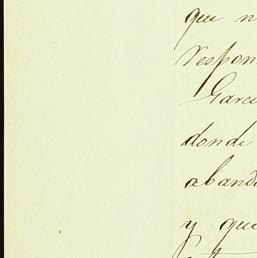 que n
respon
Garci
donde
aband
y que